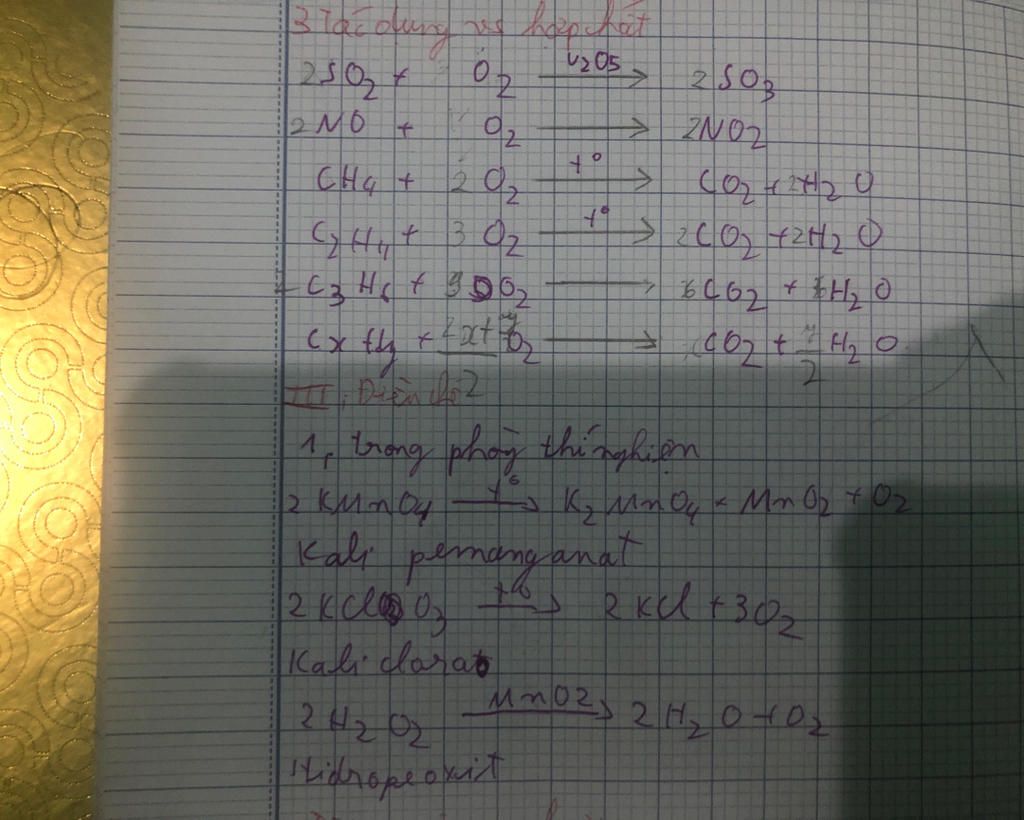 3 Tác dụng vs hợp chất
2SO2 + O2 V2O5 → 2SO3
2NO + O2 → 2NO2
CH4 + 2O2 t° → CO2 + 2H2O
C2H4 + 3O2 t° → 2CO2 + 2H2O
2C3H6 + 9O2 → 6CO2 + 6H2O
CxHy + O2 → CO2 + y/2 H2O
III, Điều chế
1, trong phòng thí nghiệm
2KMnO4 t° → K2MnO4 + MnO2 + O2
Kali pemanganat
2KClO3 t° → 2KCl + 3O2
Kali clorat
2H2O2 MnO2 → 2H2O + O2
Hidropeoxit